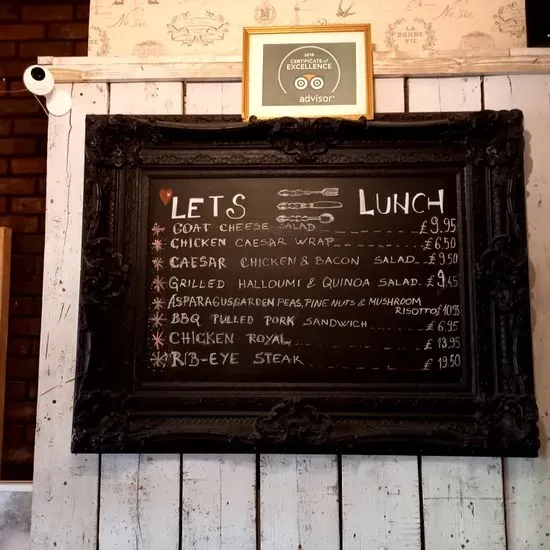 LA BONNE VIE
2018
CERTIFICATE of
EXCELLENCE
advisor
LETS LUNCH
GOAT CHEESE SALAD £9.95
CHICKEN CAESAR WRAP £6.50
CAESAR CHICKEN & BACON SALAD £9.50
GRILLED HALLOUMI & QUINOA SALAD £9.45
ASPARAGUS, GARDEN PEAS, PINE NUTS & MUSHROOM
RISOTTO £10.95
BBQ PULLED PORK SANDWICH £6.95
CHICKEN ROYAL £13.95
RIB-EYE STEAK £19.50